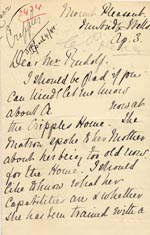 Mount Pleasant
Tunbridge Wells
Ap. 3.
7434
Cripples
Dear Mr Rudolf.
I should be glad if you
can kindly let me know
about A now at
the Cripples Home. The
Matron spoke to her Mother
about her being too old now
for the Home. I should
like to know what her
capabilities are & whether
she has been trained with a